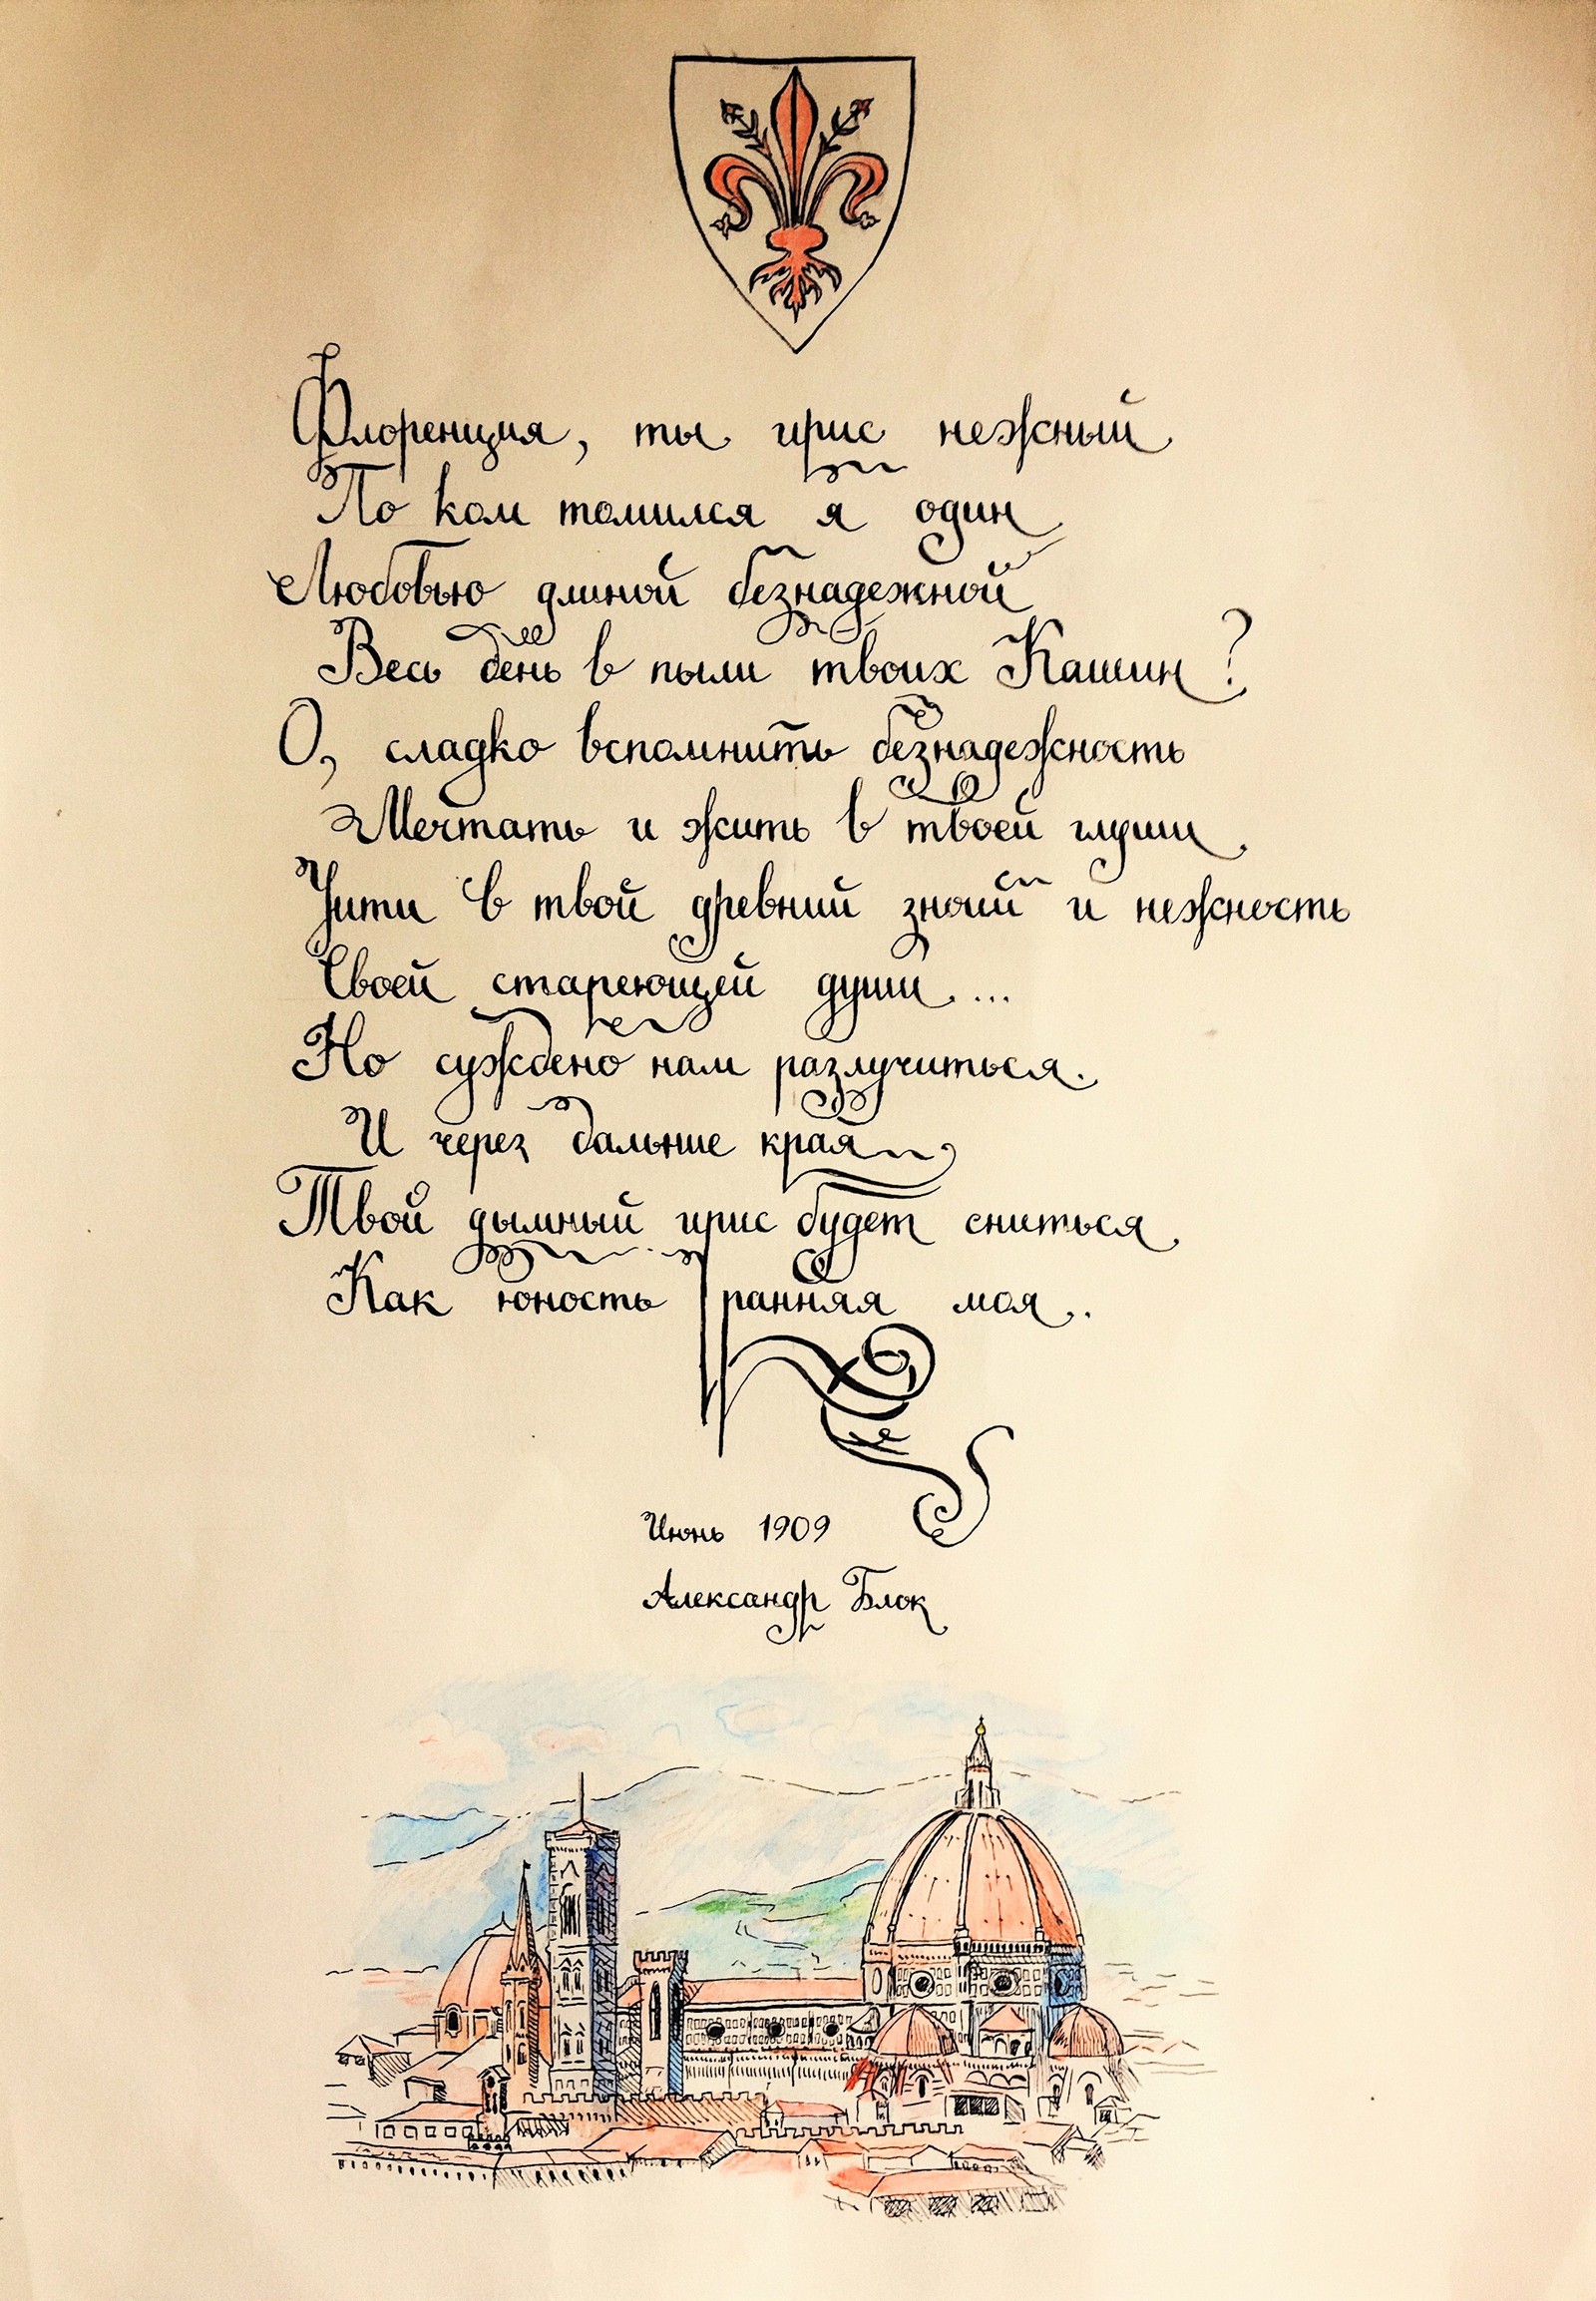 Флоренция, ты ирис нежный
По ком томился я один
Любовью длиной безнадежной
Весь день в пыли твоих Кашин?
О, сладко вспомнить безнадежность
Мечтать и жить в твоей глуши,
Уйти в твой древний зной и нежность
Своей стареющей души...
Но суждено нам разлучиться.
И через дальние края
Твой дымный ирис будет сниться,
Как юность ранняя моя..
Июнь 1909
Александр Блок